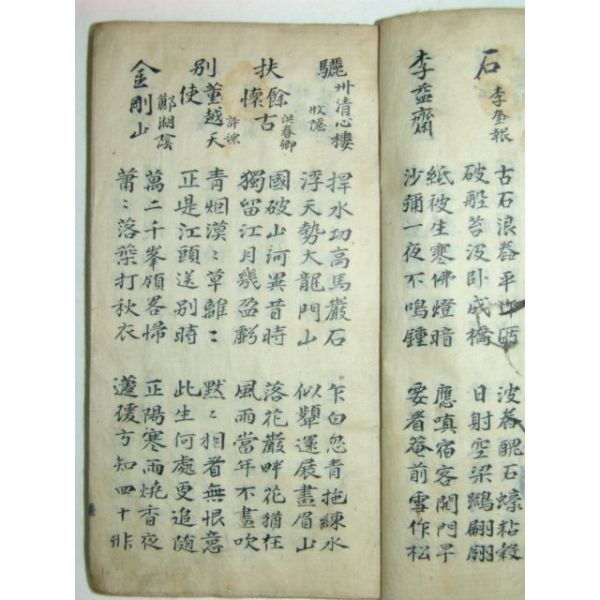 石
李奎報
古石浪舂平作 波舂醜石蠔粘殼
破船苔沒卧成橋 日射空梁鷗翩翩
李益齋
紙被生寒佛燈暗 應嗔宿客開門早
沙彌一夜不鳴鍾 要看菴前雪作松
驪州清心樓
牧隱
捍水功高馬巖石 乍白忽青拖練水
浮天勢大龍門山 似顰還展畫眉山
扶餘懷古
洪春卿
國破山河異昔時 落花巖畔花猶在
獨留江月幾盈虧 風雨當年不盡吹
別董越天使
許琮
青烟漠〻草離〻 默〻相看無恨意
正是江頭送別時 此生何處更追隨
金剛山
鄭湖陰
萬二千峯領畧歸 正陽寒雨燒香夜
蕭〻落葉打秋衣 蘧瑗方知四十非